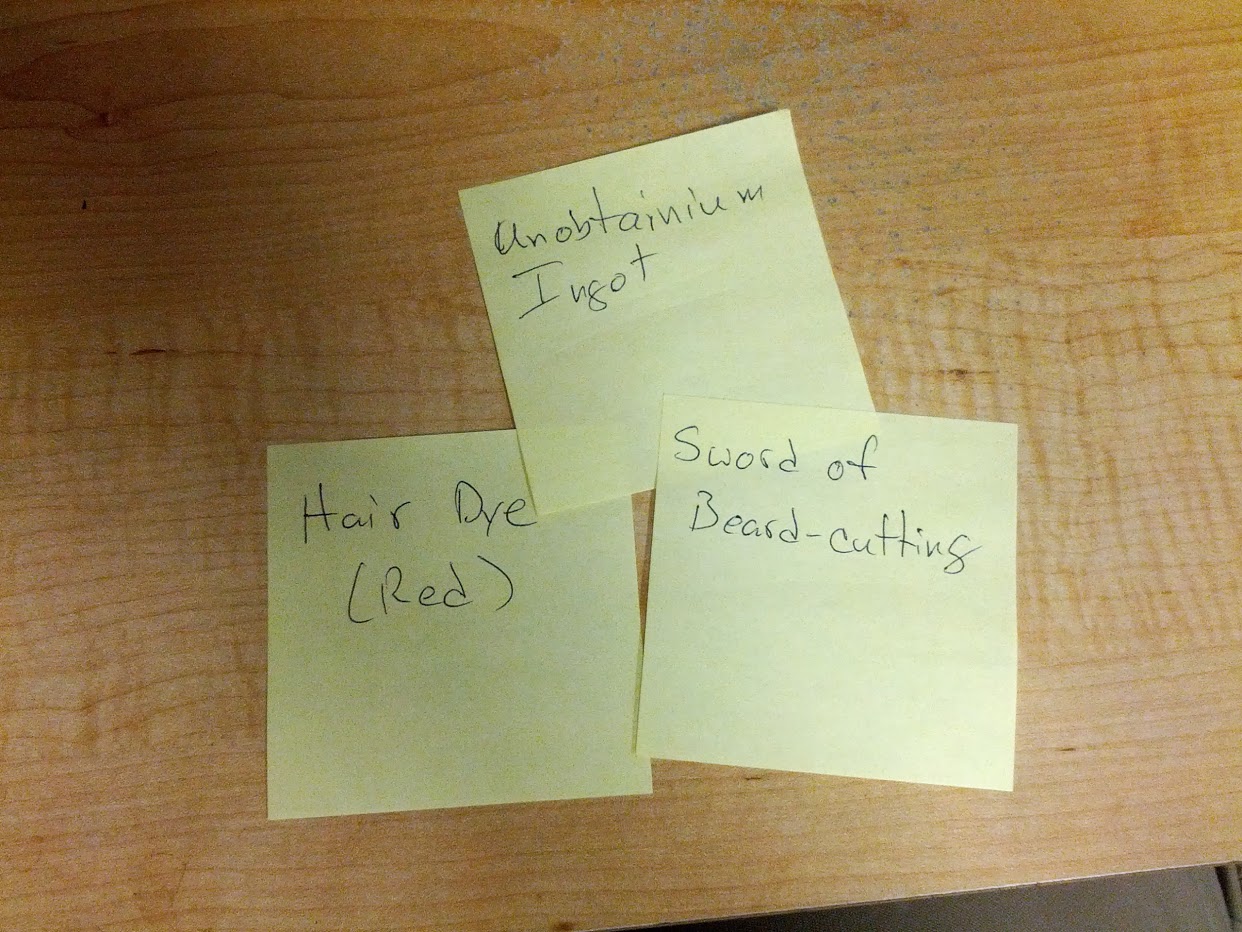 Unobtainium
Ingot
Hair Dye
(Red)
Sword of
Beard-cutting